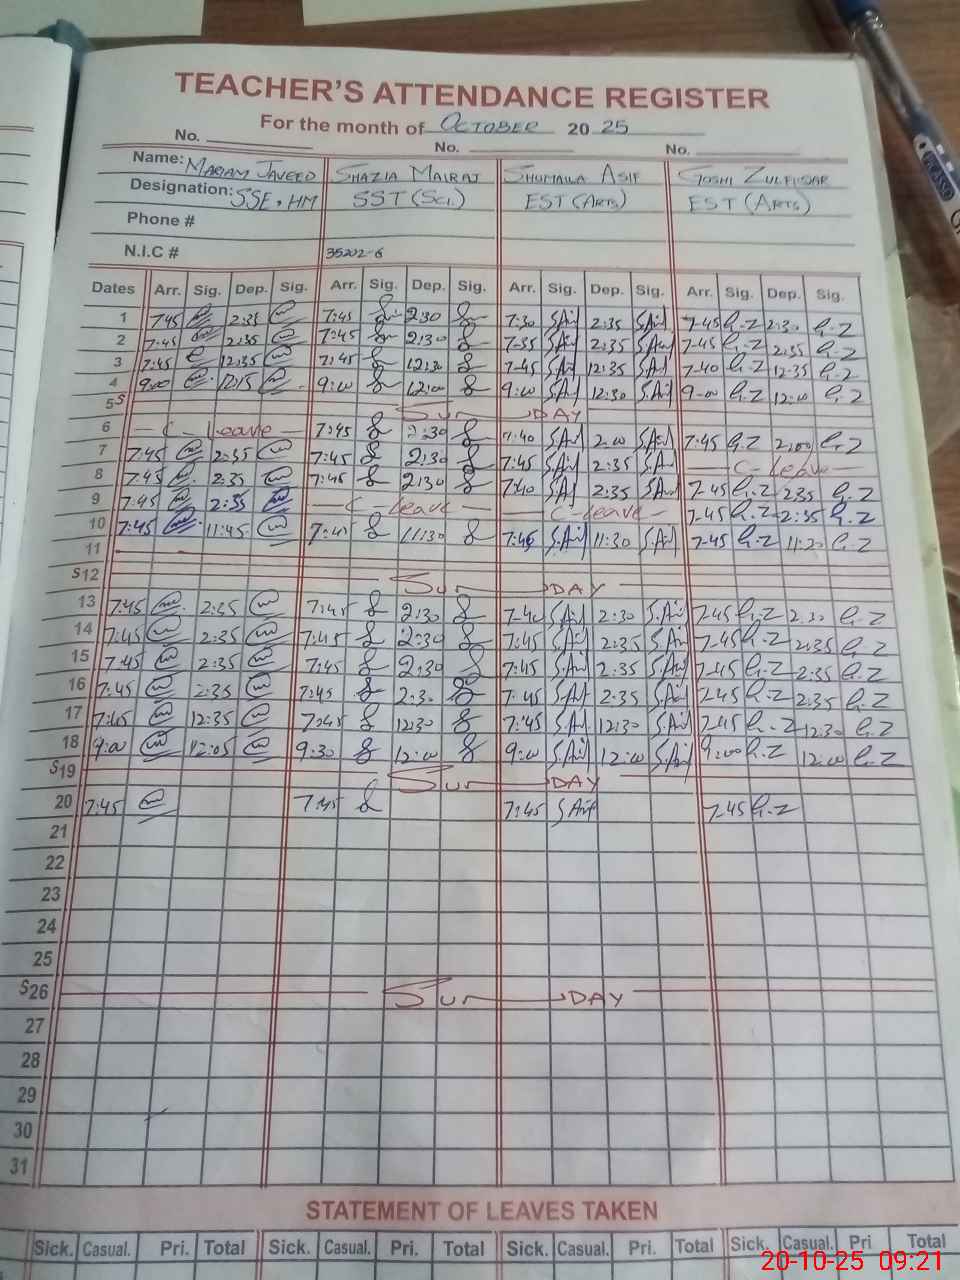 TEACHER'S ATTENDANCE REGISTER
For the month of OCTOBER 20 25
No. No. No.
Name: MARIAM JAVEED SHAZIA MAIRAJ SHUMAILA ASIF GOSHI ZULFIQAR
Designation: SSE, HM SST (SCI.) EST (ARTS) EST (ARTS)
Phone #
N.I.C # 35202-6
Dates Arr. Sig. Dep. Sig. Arr. Sig. Dep. Sig. Arr. Sig. Dep. Sig. Arr. Sig. Dep. Sig.
1 7:45 2:35 7:45 2:30 7:30 S.Asif 2:35 S.Asif 7-45 G.Z 2:30 G.Z
2 7:45 2:35 7:45 2:30 7:35 S.Asif 2:35 S.Asif 7-45 G.Z 2:35 G.Z
3 7:45 12:35 7:45 12:30 7:45 S.Asif 12:35 S.Asif 7-40 G.Z 12-35 G.Z
4 9:00 12:15 9:00 12:00 9:00 S.Asif 12:30 S.Asif 9-00 G.Z 12:00 G.Z
5 S SUNDAY
6 - C - Leave - 7:45 2:30 7:40 S.Asif 2:00 S.Asif 7:45 G.Z 2:00 G.Z
7 7:45 2:35 7:45 2:30 7:45 S.Asif 2:35 S.Asif - C - Leave -
8 7:45 2:35 7:45 2:30 7:40 S.Asif 2:35 S.Asif 7-45 G.Z 2:35 G.Z
9 7:45 2:35 - C - Leave - - C - Leave - 7-45 G.Z 2:35 G.Z
10 7:45 11:45 7:45 11:30 7:45 S.Asif 11:30 S.Asif 7-45 G.Z 11:30 G.Z
11
S12 SUNDAY
13 7:45 2:35 7:45 2:30 7-40 S.Asif 2:30 S.Asif 7-45 G.Z 2:30 G.Z
14 7:45 2:35 7:45 2:30 7:45 S.Asif 2:35 S.Asif 7-45 G.Z 2:35 G.Z
15 7:45 2:35 7:45 2:30 7:45 S.Asif 2:35 S.Asif 7-45 G.Z 2:35 G.Z
16 7:45 2:35 7:45 2:30 7:45 S.Asif 2:35 S.Asif 7-45 G.Z 2:35 G.Z
17 7:45 12:35 7:45 12:30 7:45 S.Asif 12:30 S.Asif 7-45 G.Z 12:30 G.Z
18 9:00 12:05 9:30 12:00 9:00 S.Asif 12:00 S.Asif 9:00 G.Z 12:00 G.Z
S19 SUNDAY
20 7:45 7:45 7:45 S Asif 7-45 G.Z
21
22
23
24
25
S26 SUNDAY
27
28
29
30
31
STATEMENT OF LEAVES TAKEN
Sick. Casual. Pri. Total Sick. Casual. Pri. Total Sick. Casual. Pri. Total Sick. Casual. Pri Total
20-10-25 09:21